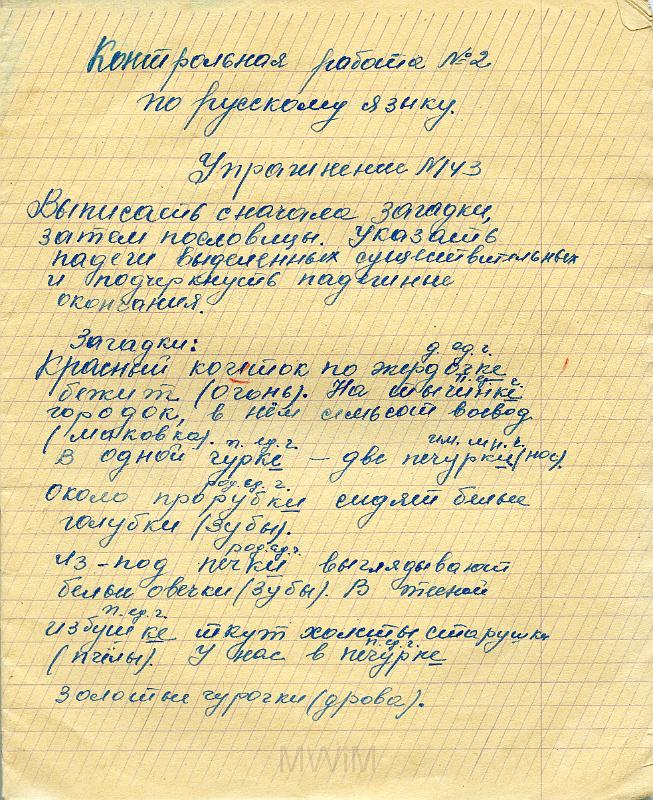 Контрольная работа №2
по русскому языку.
Упражнение №143
Выписать сначала загадки,
затем пословицы. Указать
падежи выделенных существительных
и подчеркнуть падежные
окончания.
Загадки:
д. ед. ч.
Красный кочеток по жердочке
п. ед. ч.
бежит (огонь). На тычинке
городок, в нём семьсот воевод
(маковка).
п. ед. ч. им. мн. ч.
В одной чурке – две печурки (нос).
род. ед. ч.
Около прорубки сидят белые
голубки (Зубы).
род. ед. ч.
Из-под печки выглядывают
белые овечки (Зубы). В тесной
п. ед. ч.
избушке ткут холсты старушки
п. ед. ч.
(пчёлы). У нас в печурке
Золотые чурочки (дрова).
MWiM